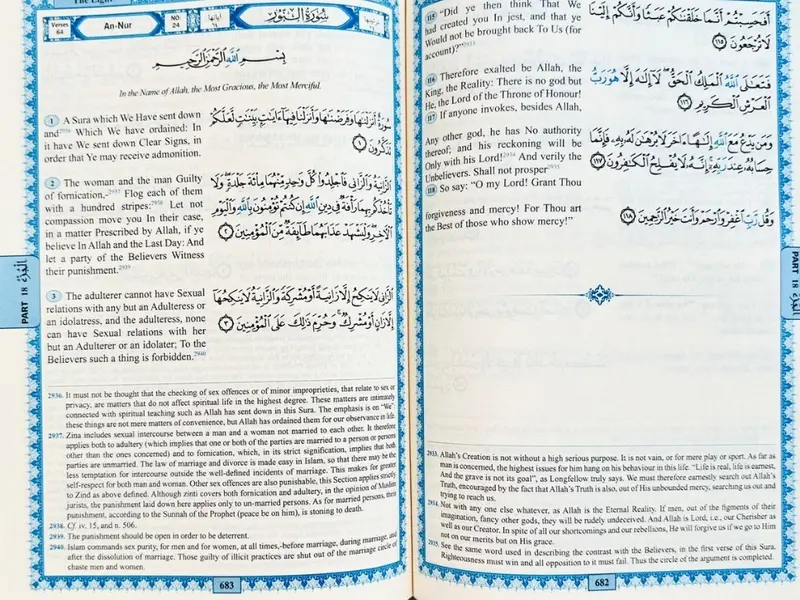 115 "Did ye then think That We
had created you In jest, and that ye
Would not be brought back To Us (for
account)?"
أَفَحَسِبْتُمْ أَنَّمَا خَلَقْنَٰكُمْ عَبَثًا وَأَنَّكُمْ إِلَيْنَا
لَا تُرْجَعُونَ ﴿١١٥﴾
116 Therefore exalted be Allah, the
King, the Reality: There is no god but
He, the Lord of the Throne of Honour!
فَتَعَٰلَى ٱللَّهُ ٱلْمَلِكُ ٱلْحَقُّ لَآ إِلَٰهَ إِلَّا هُوَ رَبُّ
ٱلْعَرْشِ ٱلْكَرِيمِ ﴿١١٦﴾
117 If anyone invokes, besides Allah,
Any other god, he has No authority
thereof; and his reckoning will be
Only with his Lord!2934 And verily the
Unbelievers. Shall not prosper2935
وَمَن يَدْعُ مَعَ ٱللَّهِ إِلَٰهًا ءَاخَرَ لَا بُرْهَٰنَ لَهُۥ بِهِۦ فَإِنَّمَا
حِسَابُهُۥ عِندَ رَبِّهِۦٓ إِنَّهُۥ لَا يُفْلِحُ ٱلْكَٰفِرُونَ ﴿١١٧﴾
118 So say: "O my Lord! Grant Thou
forgiveness and mercy! For Thou art
the Best of those who show mercy!"
وَقُل رَّبِّ ٱغْفِرْ وَٱرْحَمْ وَأَنتَ خَيْرُ ٱلرَّٰحِمِينَ ﴿١١٨﴾
2933. Allah's Creation is not without a high serious purpose. It is not vain, or for mere play or sport. As far as
man is concerned, the highest issues for him hang on his behaviour in this life. "Life is real, life is earnest,
And the grave is not its goal", as Longfellow truly says. We must therefore earnestly search out Allah's
Truth, encouraged by the fact that Allah's Truth is also, out of His unbounded mercy, searching us out and
trying to reach us.
2934. Not with any one else whatever, as Allah is the Eternal Reality. If men, out of the figments of their
imagination, fancy other gods, they will be rudely undeceived. And Allah is Lord, i.e., our Cherisher as
well as our Creator. In spite of all our shortcomings and our rebellions, He will forgive us if we go to Him
not on our merits but on His grace.
2935. See the same word used in describing the contrast with the Believers, in the first verse of this Sura.
Righteousness must win and all opposition to it must fail. Thus the circle of the argument is completed.
682
PART 18 الجزء
The Light
Verses
64
An-Nur
NO:
24
آياتها
٦٤
سُورَةُ النُّورِ
ترتيبها
بِسْمِ ٱللَّهِ ٱلرَّحْمَٰنِ ٱلرَّحِيمِ
In the Name of Allah, the Most Gracious, the Most Merciful.
1 A Sura which We Have sent down
and2936 Which We have ordained: In
it have We sent down Clear Signs, in
order that Ye may receive admonition.
سُورَةٌ أَنزَلْنَٰهَا وَفَرَضْنَٰهَا وَأَنزَلْنَا فِيهَآ ءَايَٰتٍۭ بَيِّنَٰتٍ لَّعَلَّكُمْ
تَذَكَّرُونَ ﴿١﴾
2 The woman and the man Guilty
of fornication,-2937 Flog each of them
with a hundred stripes:2938 Let not
compassion move you In their case,
in a matter Prescribed by Allah, if ye
believe In Allah and the Last Day: And
let a party of the Believers Witness
their punishment.2939
ٱلزَّانِيَةُ وَٱلزَّانِى فَٱجْلِدُوا۟ كُلَّ وَٰحِدٍ مِّنْهُمَا مِا۟ئَةَ جَلْدَةٍ وَلَا
تَأْخُذْكُم بِهِمَا رَأْفَةٌ فِى دِينِ ٱللَّهِ إِن كُنتُمْ تُؤْمِنُونَ بِٱللَّهِ وَٱلْيَوْمِ
ٱلْءَاخِرِ وَلْيَشْهَدْ عَذَابَهُمَا طَآئِفَةٌ مِّنَ ٱلْمُؤْمِنِينَ ﴿٢﴾
3 The adulterer cannot have Sexual
relations with any but an Adulteress or
an idolatress, and the adulteress, none
can have Sexual relations with her
but an Adulterer or an idolater; To the
Believers such a thing is forbidden.2940
ٱلزَّانِى لَا يَنكِحُ إِلَّا زَانِيَةً أَوْ مُشْرِكَةً وَٱلزَّانِيَةُ لَا يَنكِحُهَآ
إِلَّا زَانٍ أَوْ مُشْرِكٌ وَحُرِّمَ ذَٰلِكَ عَلَى ٱلْمُؤْمِنِينَ ﴿٣﴾
2936. It must not be thought that the checking of sex offences or of minor improprieties, that relate to sex or
privacy, are matters that do not affect spiritual life in the highest degree. These matters are intimately
connected with spiritual teaching such as Allah has sent down in this Sura. The emphasis is on "We":
these things are not mere matters of convenience, but Allah has ordained them for our observance in life.
2937. Zina includes sexual intercourse between a man and a woman not married to each other. It therefore
applies both to adultery (which implies that one or both of the parties are married to a person or persons
other than the ones concerned) and to fornication, which, in its strict signification, implies that both
parties are unmarried. The law of marriage and divorce is made easy in Islam, so that there may be the
less temptation for intercourse outside the well-defined incidents of marriage. This makes for greater
self-respect for both man and woman. Other sex offences are also punishable, this Section applies strictly
to Zind as above defined. Although zinti covers both fornication and adultery, in the opinion of Muslim
jurists, the punishment laid down here applies only to un-married persons. As for married persons, their
punishment, according to the Sunnah of the Prophet (peace be on him), is stoning to death.
2938. Cf. iv. 15, and n. 506.
2939. The punishment should be open in order to be deterrent.
2940. Islam commands sex purity, for men and for women, at all times,-before marriage, during marriage, and
after the dissolution of marriage. Those guilty of illicit practices are shut out of the marriage circle of
chaste men and women.
683
PART 18 الجزء